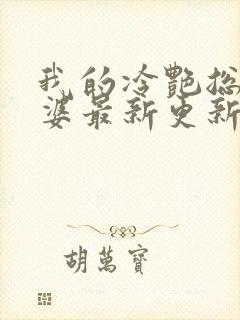 我的冷艷总
婆最新更新
胡萬寶